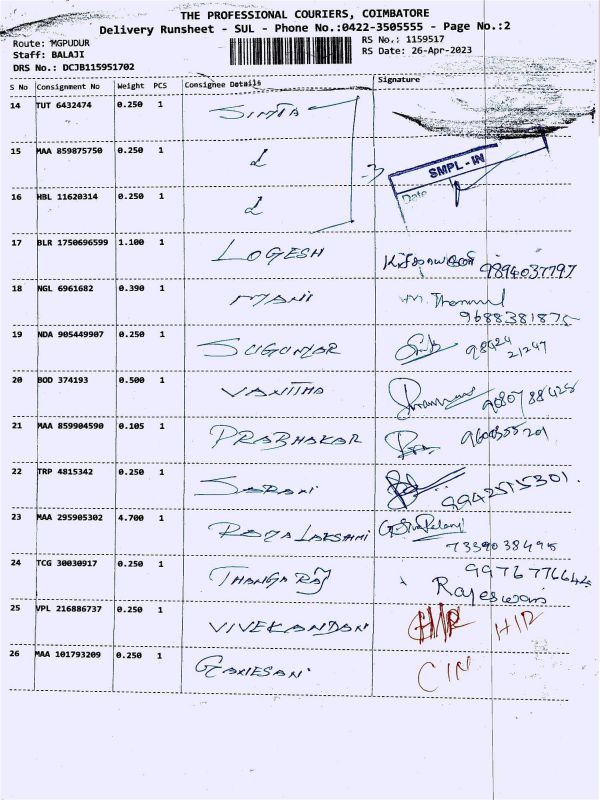 THE PROFESSIONAL COURIERS, COIMBATORE
Delivery Runsheet - SUL - Phone No.:0422-3505555 - Page No.:2
Route: MGPUDUR RS No.: 1159517
Staff: BALAJI RS Date: 26-Apr-2023
DRS No.: DCJB115951702
S No Consignment No Weight PCS Consignee Details Signature
14 TUT 6432474 0.250 1 SIMTA
15 MAA 859875750 0.250 1
SMPL-IN
Date
16 HBL 11620314 0.250 1
17 BLR 1750696599 1.100 1 LOGESH 9894037797
18 NGL 6961682 0.390 1 MANI
9688381875
19 NDA 905449907 0.250 1 SUGUMAR 98424
21247
20 BOD 374193 0.500 1 VANITHA 9080788428
21 MAA 859904590 0.105 1 PRABHAKAR 9600355201
22 TRP 4815342 0.250 1 SARANI 9942515301.
23 MAA 295905302 4.700 1 RAMALAKSHMI G.SivaPalani
7339038495
24 TCG 30030917 0.250 1 THANGARAJ 9976776644
Rajeswari
25 VPL 216886737 0.250 1 VIVEKANDAN HIR HIR
26 MAA 101793209 0.250 1 GANESAN CIN